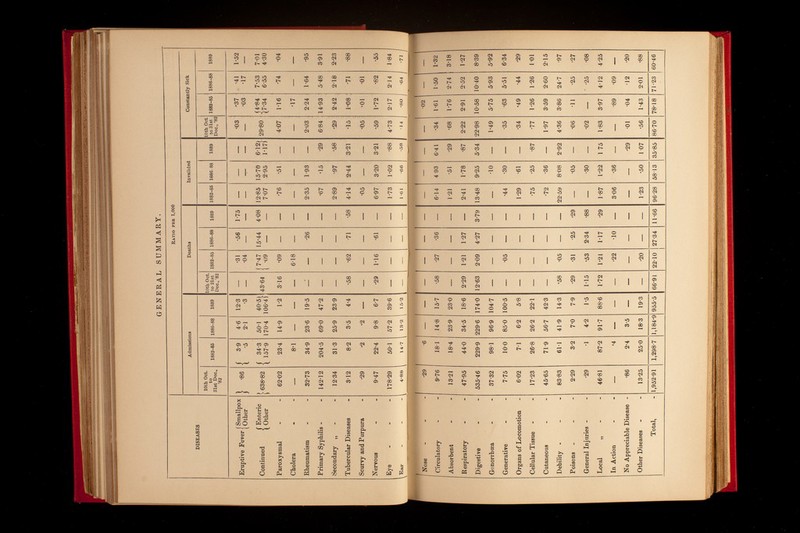 GENERAL SUMMARY.
RATIO PER 1,000
DISEASES | Admissions | Deaths | Invalided | Constantly Sick
10th Oct. to 31st Dec., '82 | 1883-85 | 1886-88 | 1889 | 10th Oct. to 31st Dec., '82 | 1883-85 | 1886-88 | 1889 | 1883-85 | 1886-88 | 1889 | 10th Oct. to 31st Dec., '82 | 1883-85 | 1886-88 | 1889
Eruptive Fever { Smallpox | ·86 | 3·9 | 4·6 | 12·3 | — | ·31 | ·56 | 1·75 | — | — | — | ·03 | ·37 | ·41 | 1·32
{ Other | ·5 | 2·1 | ·3 | ·04 | — | — | ·03 | ·17 | —
Continued { Enteric | 638·82 | 34·3 | 50·1 | 40·5 | 43·64 | 7·47 | 15·44 | 4·08 | 12·85 | 15·79 | 6·12 | 29·80 | 4·84 | 7·53 | 7·01
{ Other | 157·9 | 170·4 | 106·4 | ·09 | — | — | 7·07 | 2·95 | 1·17 | 7·34 | 6·55 | 4·30
Paroxysmal | 62·02 | 23·4 | 14·9 | 1·2 | 3·16 | ·09 | — | — | ·76 | ·51 | — | 4·07 | 1·16 | ·74 | ·04
Cholera | — | 8·1 | — | — | — | 6·18 | — | — | — | — | — | — | ·17 | — | —
Rheumatism | 32·73 | 34·9 | 23·6 | 19·5 | — | — | ·26 | — | 2·35 | 1·93 | — | 2·03 | 2·24 | 1·64 | ·95
Primary Syphilis | 142·12 | 204·5 | 69·0 | 47·2 | — | — | — | — | ·67 | ·15 | ·29 | 6·84 | 14·93 | 5·48 | 3·91
Secondary „ | 12·34 | 31·3 | 25·9 | 23·9 | — | — | — | — | 2·89 | ·97 | ·58 | ·29 | 2·42 | 2·18 | 2·23
Tubercular Diseases | 3·12 | 8·2 | 3·5 | 4·4 | ·58 | ·62 | ·71 | ·58 | 4·14 | 2·44 | 3·21 | ·15 | 1·08 | ·71 | ·88
Scurvy and Purpura | ·29 | ·2 | ·2 | — | — | — | — | — | ·05 | — | — | ·05 | ·01 | ·01 | —
Nervous | 9·47 | 22·4 | 9·8 | 6·7 | ·29 | 1·16 | ·61 | — | 6·97 | 3·20 | 3·21 | ·59 | 1·72 | ·82 | ·55
Eye | 178·29 | 50·1 | 57·5 | 39·6 | — | — | — | — | 1·73 | 1·02 | ·88 | 4·73 | 2·17 | 2·14 | 1·84
Ear | 4·88 | 14·7 | 13·2 | 15·2 | — | — | — | — | 1·01 | ·86 | ·58 | ·14 | ·80 | ·64 | ·71
Nose | ·29 | ·6 | — | — | — | — | — | — | — | — | — | — | ·02 | — | —
Circulatory | 9·76 | 18·1 | 14·8 | 15·7 | ·58 | ·27 | ·36 | — | 6·14 | 4·93 | 6·41 | ·34 | 1·61 | 1·50 | 1·32
Absorbent | 13·21 | 18·4 | 23·9 | 23·0 | — | — | — | — | 1·21 | ·51 | ·29 | ·88 | 1·76 | 2·74 | 3·18
Respiratory | 47·95 | 44·0 | 34·5 | 18·6 | 2·29 | 1·21 | 1·27 | — | 2·41 | 1·78 | ·87 | 2·22 | 2·91 | 2·52 | 1·27
Digestive | 535·46 | 229·9 | 229·6 | 174·0 | 12·63 | 2·09 | 4·27 | 3·79 | 13·48 | 9·25 | 5·34 | 22·98 | 10·56 | 10·40 | 8·39
Gonorrhœa | 37·32 | 98·1 | 96·9 | 104·7 | — | — | — | — | — | ·10 | — | 1·49 | 5·75 | 5·93 | 5·92
Generative | 7·75 | 10·0 | 85·0 | 100·3 | — | ·05 | — | — | ·44 | ·30 | — | ·35 | ·63 | 5·51 | 6·34
Organs of Locomotion | 6·02 | 7·1 | 6·2 | 5·8 | — | — | — | — | 1·29 | ·61 | — | ·34 | ·49 | ·44 | ·29
Cellular Tissue | 17·23 | 26·8 | 26·9 | 22·1 | — | — | — | — | ·75 | ·25 | ·87 | ·77 | 1·26 | 1·26 | 1·01
Cutaneous | 45·65 | 71·9 | 56·7 | 42·3 | — | — | — | — | ·72 | ·36 | — | 1·97 | 3·39 | 2·60 | 2·15
Debility | 83·83 | 61·1 | 41·2 | 14·3 | ·58 | ·05 | ·05 | — | 22·59 | 8·08 | 2·92 | 4·36 | 3·36 | 2·47 | ·97
Poisons | 2·29 | 3·2 | 7·0 | 7·9 | ·29 | ·51 | ·25 | ·29 | — | ·05 | — | ·06 | ·11 | ·25 | ·27
General Injuries | ·29 | ·1 | 4·2 | 1·5 | 1·15 | ·53 | 2·34 | ·88 | — | ·30 | — | ·02 | — | ·25 | ·08
Local „ | 46·81 | 87·2 | 91·7 | 88·6 | 1·72 | 1·21 | 1·17 | ·29 | 1·87 | 1·22 | 1·75 | 1·85 | 3·97 | 4·12 | 4·25
In Action | — | ·4 | — | — | — | ·22 | ·10 | — | 3·06 | ·36 | — | — | ·89 | ·09 | —
No Appreciable Disease | ·86 | 2·4 | 3·5 | — | — | — | — | — | — | — | ·29 | ·01 | ·04 | ·12 | ·20
Other Diseases | 13·25 | 25·0 | 18·3 | 19·3 | — | ·20 | — | — | 1·23 | ·50 | 1·07 | ·56 | 1·43 | 2·01 | ·88
Total, | 1,952·91 | 1,298·7 | 1,184·9 | 955·5 | 66·91 | 22·10 | 27·34 | 11·66 | 96·28 | 58·13 | 35·85 | 86·70 | 78·18 | 71·23 | 60·46